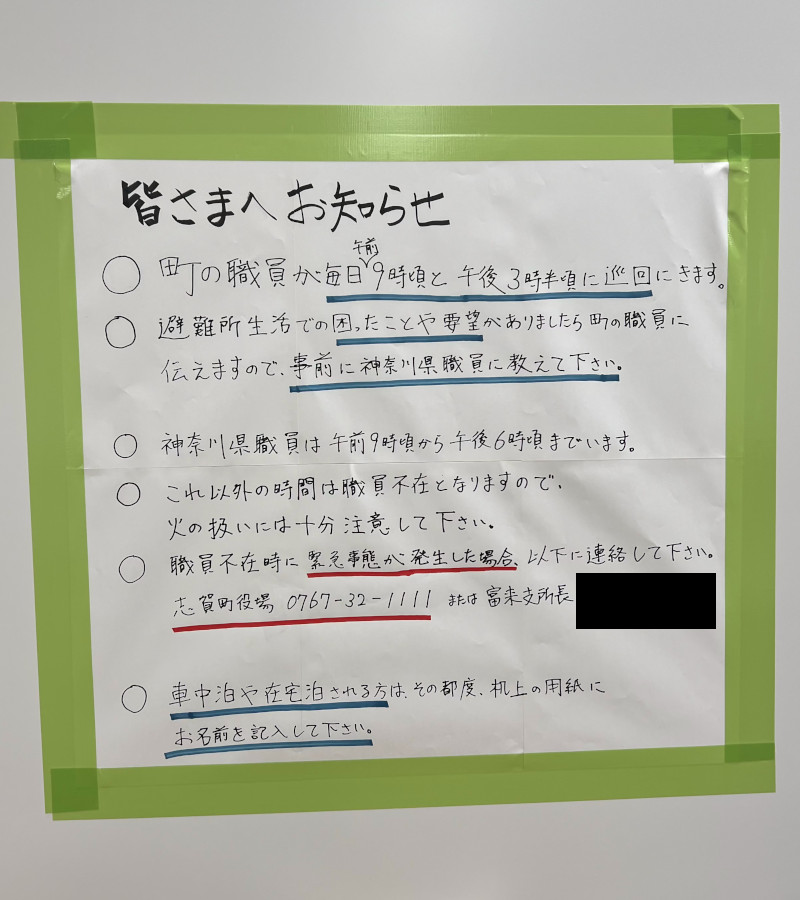 皆さまへ お知らせ
○ 町の職員が毎日午前9時頃と午後3時半頃に巡回にきます。
○ 避難所生活での困ったことや要望がありましたら町の職員に
伝えますので、事前に神奈川県職員に教えて下さい。
○ 神奈川県職員は午前9時頃から午後6時頃までいます。
○ これ以外の時間は職員不在となりますので、
火の扱いには十分注意して下さい。
○ 職員不在時に緊急事態が発生した場合、以下に連絡して下さい。
志賀町役場 0767-32-1111 または富来支所長
○ 車中泊や在宅泊される方は、その都度、机上の用紙に
お名前を記入して下さい。